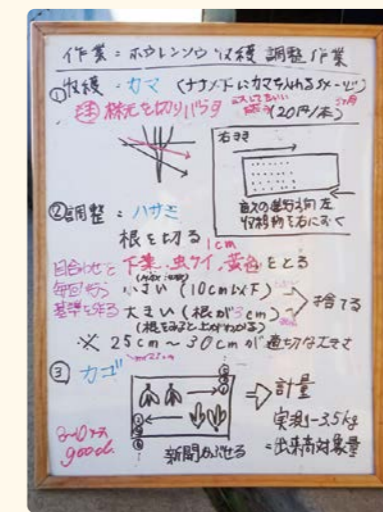 作業：ホウレンソウ収穫調整作業
①収穫：カマ (ナナメ下にカマを入れるイメージ)
㊟ 株元を切りバラす
(20円/本)
右
畝の進行方向 左
収穫物を右におく
②調整：ハサミ
根を切る 1cm
目合わせを 下葉、虫クイ、黄色をとる
毎回行う 小さい (10cm以下)
基準を作る 大きい (根が3cm) 捨てる
(根をみると上がわかる)
※ 25cm～30cmが適切な大きさ
③ カゴ
⇒計量
実測-3.5kg
=出来高対象量
good.
新聞かぶせる